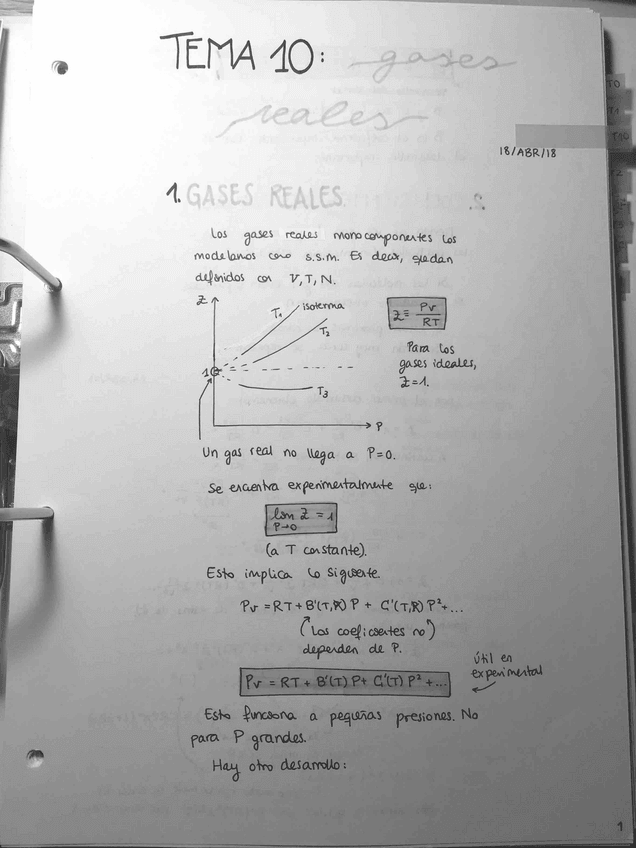 TEMA 10: gases
reales
18/ABR/18
1. GASES REALES.
Los gases reales monocomponentes los
modelamos como s.s.m. Es decir, quedan
definidos con V, T, N.
Z
T₁ isoterma
T₂
Z ≡ Pv / RT
Para los
gases ideales,
Z=1.
1
T₃
P
Un gas real no llega a P=0.
Se encuentra experimentalmente que:
lim Z = 1
P→0
(a T constante).
Esto implica lo siguiente.
Pv = RT + B'(T,P) P + C'(T,P) P² + ...
(Los coeficientes no)
dependen de P.
Pv = RT + B'(T) P + C'(T) P² + ...
Útil en
experimental
Esto funciona a pequeñas presiones. No
para P grandes.
Hay otro desarrollo:
1
T0
T1
T10